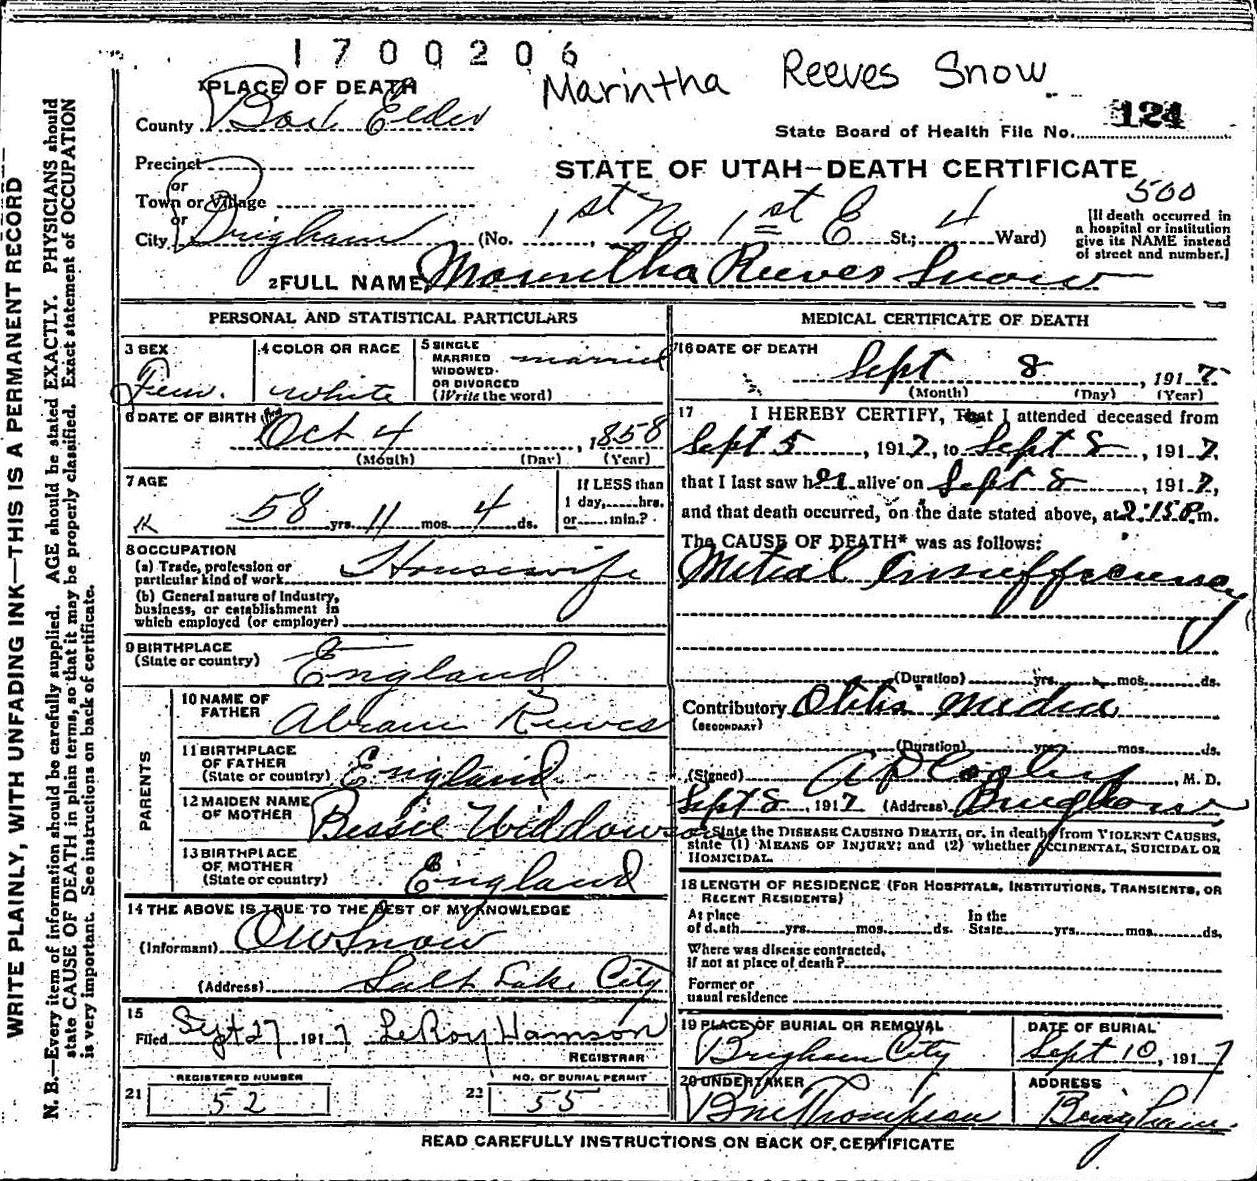 1700206
Marintha Reeves Snow
1PLACE OF DEATH
County Box Elder
124
State Board of Health File No.
Precinct
or
Town or Village
or
City Brigham
STATE OF UTAH—DEATH CERTIFICATE
500
(No. 1st No 1st E St.; 4 Ward)
[If death occurred in
a hospital or institution
give its NAME instead
of street and number.]
2FULL NAME Marintha Reeves Snow
PERSONAL AND STATISTICAL PARTICULARS
3 SEX
Fem.
4 COLOR OR RACE
white
5 SINGLE
MARRIED
WIDOWED
OR DIVORCED
(Write the word)
married
6 DATE OF BIRTH
Oct 4, 1858
(Month) (Day) (Year)
7 AGE
58 yrs. 11 mos. 4 ds.
If LESS than
1 day, hrs.
or min.?
8 OCCUPATION
(a) Trade, profession or
particular kind of work Housewife
(b) General nature of Industry,
business, or establishment in
which employed (or employer)
9 BIRTHPLACE
(State or country) England
PARENTS
10 NAME OF
FATHER Abram Reeves
11 BIRTHPLACE
OF FATHER
(State or country) England
12 MAIDEN NAME
OF MOTHER Bessie Widdowson
13 BIRTHPLACE
OF MOTHER
(State or country) England
14 THE ABOVE IS TRUE TO THE BEST OF MY KNOWLEDGE
(Informant) O W Snow
(Address) Salt Lake City
15
Filed Sept 27 1917 LeRoy Hamson
REGISTRAR
REGISTERED NUMBER
21 52
NO. OF BURIAL PERMIT
22 55
MEDICAL CERTIFICATE OF DEATH
16 DATE OF DEATH
Sept 8, 1917
(Month) (Day) (Year)
17 I HEREBY CERTIFY, That I attended deceased from
Sept 5, 1917, to Sept 8, 1917,
that I last saw her alive on Sept 8, 1917,
and that death occurred, on the date stated above, at 2:15 P.m.
The CAUSE OF DEATH* was as follows:
Mitral Insufficiency
(Duration) yrs. mos. ds.
Contributory Otitis Media
(SECONDARY)
(Duration) yrs. mos. ds.
(Signed) A D Cooley, M. D.
Sept 8, 1917 (Address) Brigham
State the DISEASE CAUSING DEATH, or, in deaths from VIOLENT CAUSES,
state (1) MEANS OF INJURY; and (2) whether ACCIDENTAL, SUICIDAL OR
HOMICIDAL.
18 LENGTH OF RESIDENCE (FOR HOSPITALS, INSTITUTIONS, TRANSIENTS, OR
RECENT RESIDENTS)
At place
of death yrs. mos. ds.
In the
State yrs. mos. ds.
Where was disease contracted,
if not at place of death?
Former or
usual residence
19 PLACE OF BURIAL OR REMOVAL
Brigham City
DATE OF BURIAL
Sept 10, 1917
20 UNDERTAKER
Thompson
ADDRESS
Brigham
READ CAREFULLY INSTRUCTIONS ON BACK OF CERTIFICATE
WRITE PLAINLY, WITH UNFADING INK—THIS IS A PERMANENT RECORD
N. B.—Every item of information should be carefully supplied. AGE should be stated EXACTLY. PHYSICIANS should
state CAUSE OF DEATH in plain terms, so that it may be properly classified. Exact statement of OCCUPATION
is very important. See instructions on back of certificate.